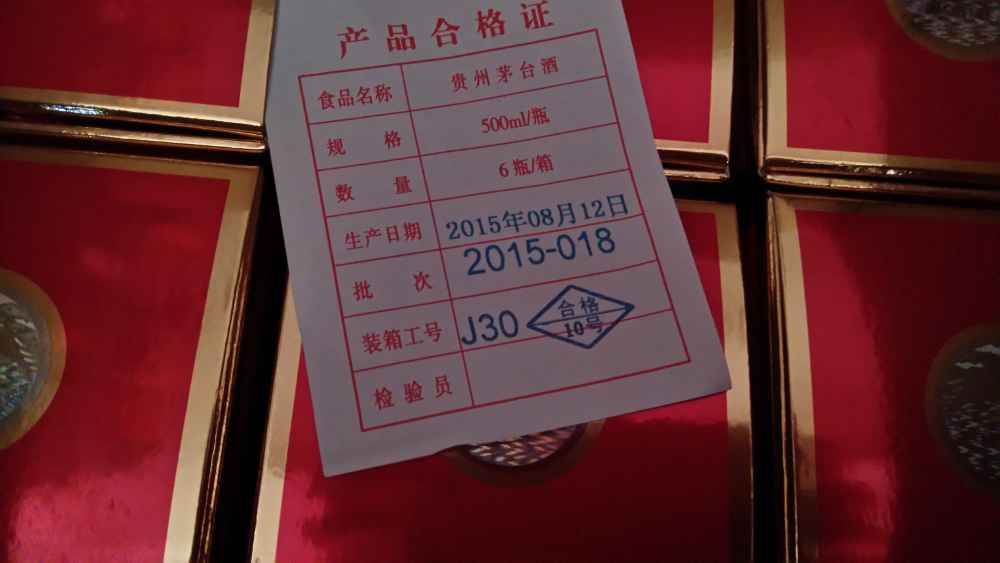 产品合格证
食品名称 贵州茅台酒
规格 500ml/瓶
数量 6瓶/箱
生产日期 2015年08月12日
批次 2015-018
装箱工号 J30 合格
10号
检验员